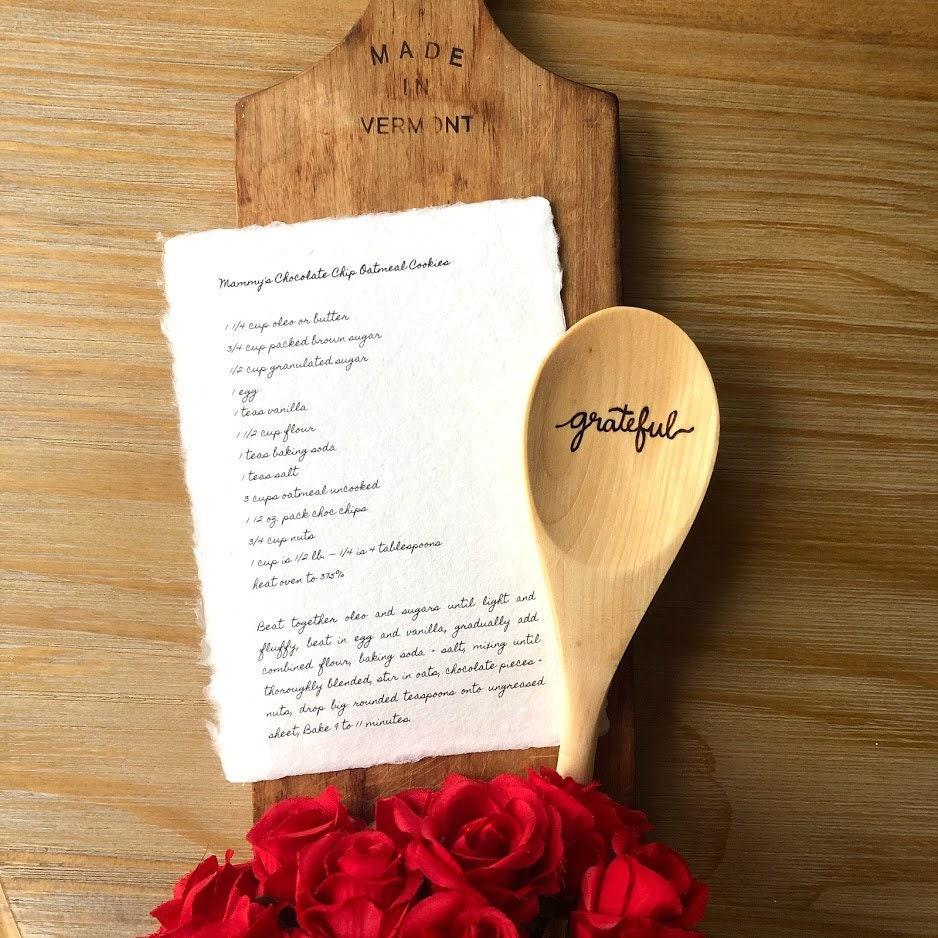 MADE
IN
VERMONT
Mammy's Chocolate Chip Oatmeal Cookies
1 1/4 cup oleo or butter
3/4 cup packed brown sugar
1/2 cup granulated sugar
1 egg
1 teas vanilla
1 1/2 cup flour
1 teas baking soda
1 teas salt
3 cups oatmeal uncooked
1 12 oz. pack choc chips
3/4 cup nuts
1 cup is 1/2 lb. - 1/4 is 4 tablespoons
heat oven to 375%
Beat together oleo and sugars until light and
fluffy, beat in egg and vanilla, gradually add
combined flour, baking soda + salt, mixing until
thoroughly blended, stir in oats, chocolate pieces +
nuts, drop big rounded teaspoons onto ungreased
sheet, Bake 9 to 11 minutes.
grateful